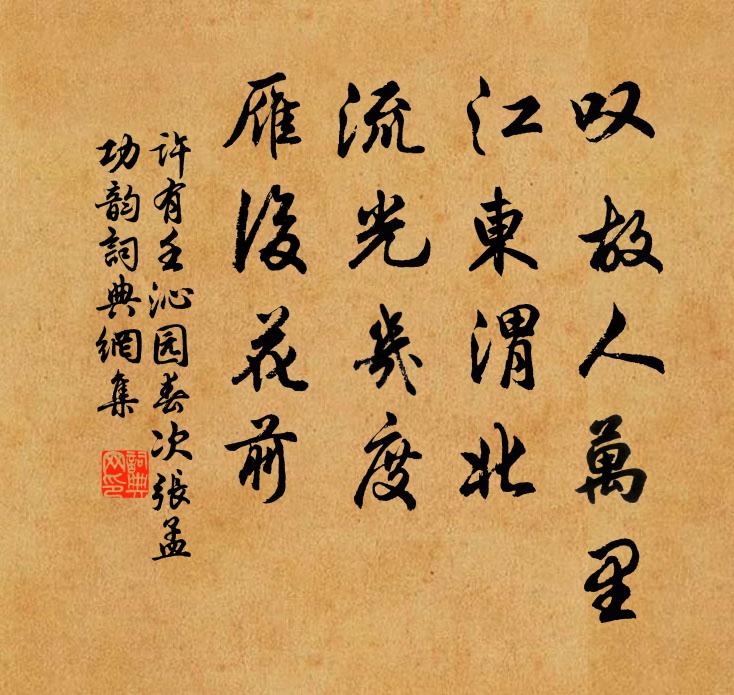 叹故人萬里
江東渭北
流光幾度
雁後花前
许有壬沁园春次張孟
功韵詞典網集
詞典網印